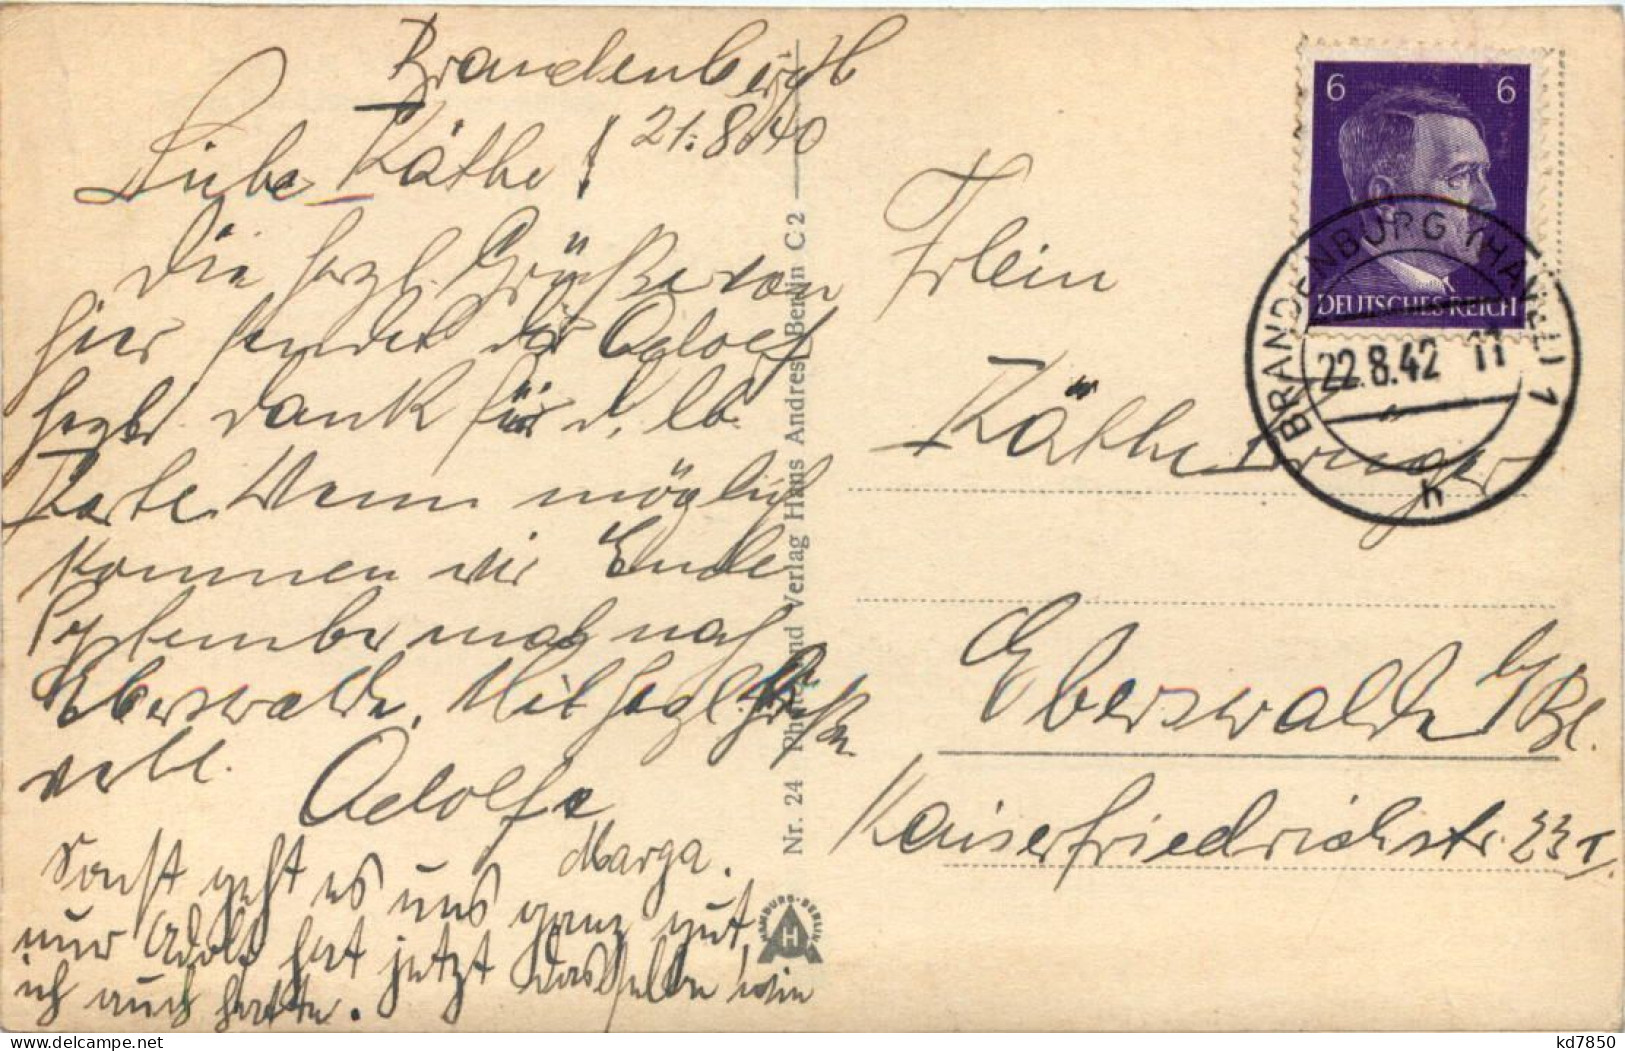 Brandenbg/H
21.8.40
Liebe Käthe!
Die herzl. Grüße von
hier sendet dir Adolf
herzl. Dank für d. lb.
Karte. Wenn möglich
kommen wir Ende
September mal nach
Eberswalde. Mit herzl. Grüßen
verbl.
Adolf u.
Marga.
Sonst geht es uns ganz gut,
nur Adolf hat jetzt dasselbe wie
ich auch hatte.
Nr. 24 und Verlag Hans Andres, Berlin C 2
HAMBURG-BERLIN
H
6 6
DEUTSCHES REICH
BRANDENBURG (HAVEL) 1
22.8.42 11
h
Frlein
Käthe
Eberswalde b/Bl.
Kaiserfriedrichstr. 23 I.
kd7850